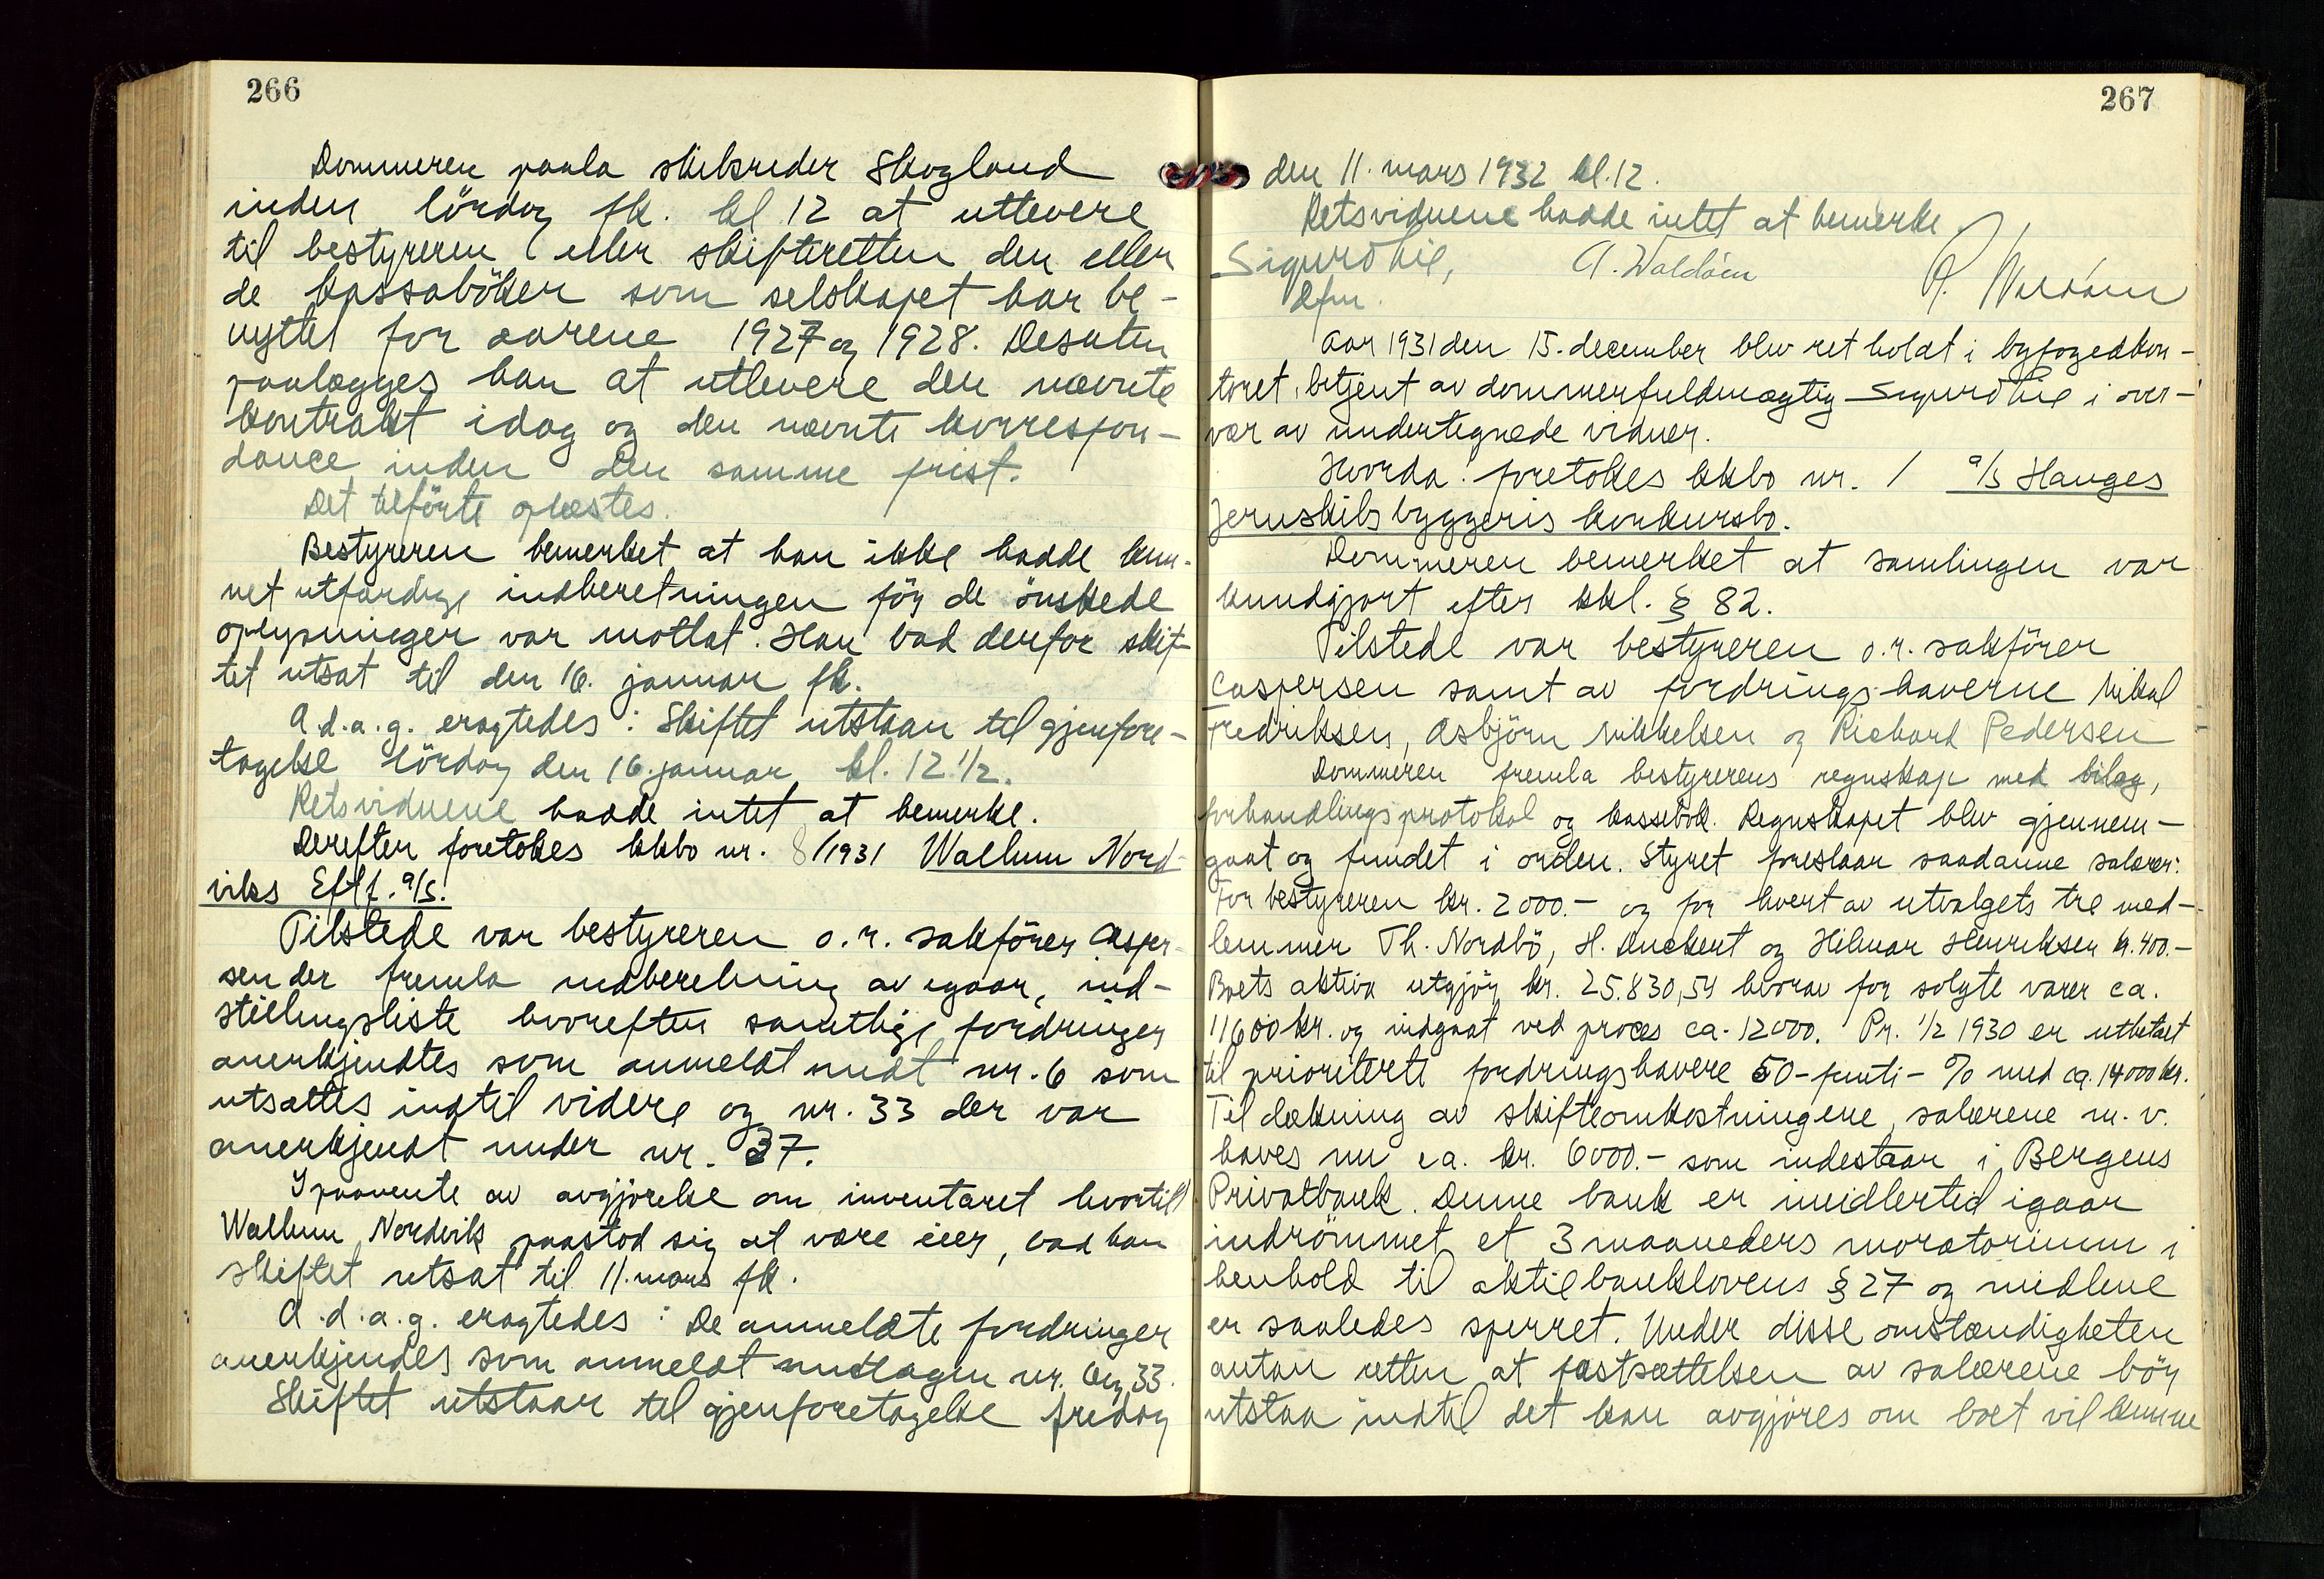 266
Dommeren paala skibsreder Skogland
inden lördag fk. kl 12 at utlevere
til bestyreren eller skifteretten den eller
de kassaböker som selskapet har be-
nyttet for aarene 1927 og 1928. Desuten
paalægges han at utlevere den nævnte
kontrakt idag og den nævnte korrespon-
dance inden den samme frist.
Det tilförte oplæstes.
Bestyreren bemerket at han ikke hadde kun-
net utfærdige indberetningen för de önskede
oplysninger var mottat. Han bad derfor skif-
tet utsat til den 16. januar fk.
A.d.a.g. eragtedes: Skiftet utstaar til gjenfore-
tagelse lördag den 16. januar kl. 12 1/2.
Retsvidnene hadde intet at bemerke.
Derefter foretokes kkbo nr. 8/1931 Wallum Nord-
viks Eftf. a/s.
Tilstede var bestyreren o.r. sakförer Casper-
sen der fremla indberetning av igaar, ind-
stillingsliste hvorefter samtlige fordringer
anerkjendtes som anmeldt undt nr. 6 som
utsattes indtil videre og nr. 33 der var
anerkjendt under nr. 37.
I paavente av avgjörelse om inventaret hvortil
Wallum Nordvik paastod sig at være eier, bad han
skiftet utsat til 11. mars fk.
A.d.a.g. eragtedes: De anmeldte fordringer
anerkjendes som anmeldt undtagen nr. 6 og 33.
Skiftet utstaar til gjenforetagelse fredag
267
den 11. mars 1932 kl. 12.
Retsvidnene hadde intet at bemerke.
Sigurd A. Waldam
dfm.
Aar 1931 den 15. december blev ret holdt i byfogedkon-
toret, betjent av dommerfuldmægtig Sigurd i over-
vær av undertegnede vidner.
Hvorda: foretokes kkbo nr. 1 a/s Hauges
Jernskibsbyggeris konkursbo.
Dommeren bemerket at samlingen var
kundgjort efter kkl. § 82.
Tilstede var bestyreren o.r. sakförer
Caspersen samt av fordringshaverne Mikal
Fredriksen, Asbjörn Mikkelsen og Richard Pedersen
Dommeren fremla bestyrerens regnskap med bilag,
forhandlingsprotokol og kassebok. Regnskapet blev gjennem-
gaat og fundet i orden. Styret foreslaar saadanne salærer:
For bestyreren kr. 2000.- og for hvert av utvalgets tre med-
lemmer Th. Nordbö, H. Duckert og Hilmar Henriksen kr. 400.-
Boets aktiva utgjör kr. 25.830,54 hvorav for solgte varer ca.
11600 kr. og indgaat ved proces ca. 12000. Pr. 1/2 1930 er utbetalt
til prioriterte fordringshavere 50-femti-% med ca. 14000 kr.
Til dækning av skifteomkostningene, salærene m.v.
haves nu ca. kr. 6000.- som indestaar i Bergens
Privatbank. Denne bank er imidlertid igaar
indrömmet et 3 maaneders moratorium i
henhold til aktiebanklovens § 27 og midlene
er saaledes sperret. Under disse omstændigheten
antar retten at fastsættelsen av salærene bör
utstaa indtil det kan avgjöres om boet vil kunne